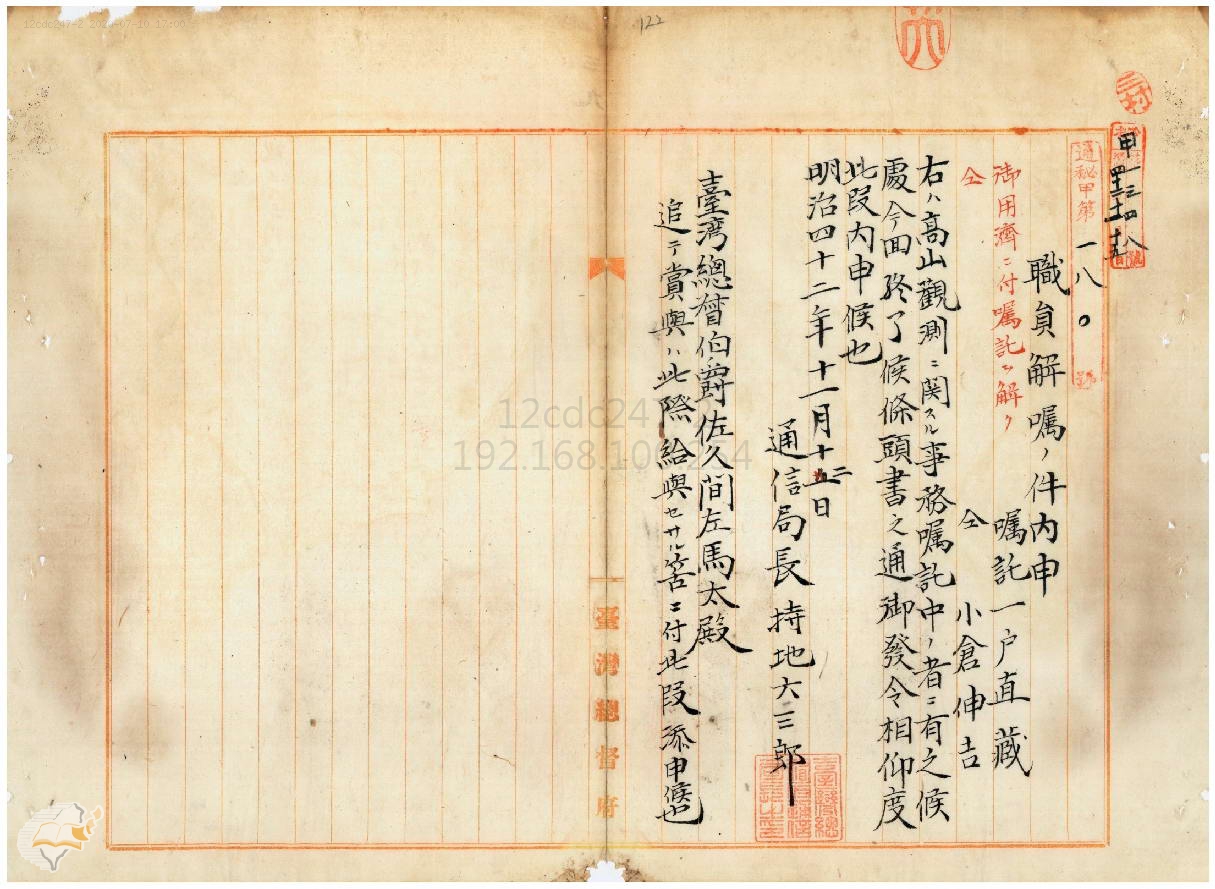 122
三村
甲一三四八
通秘甲第一八〇號
職員解嘱ノ件内申
御用濟ニ付嘱託ヲ解ク
嘱託一户直藏
仝
仝小倉伸吉
右ハ高山觀測ニ関スル事務嘱託中ノ者ニ有之候
處今回終了候條頭書之通御發令相仰度
此段内申候也
明治四十二年十一月十二日
通信局長持地六三郎
臺灣總督伯爵佐久間左馬太殿
追テ賞與ハ此際給與セサル筈ニ付此段添申候也
臺灣總督府
12cdc247-2
192.168.100.254